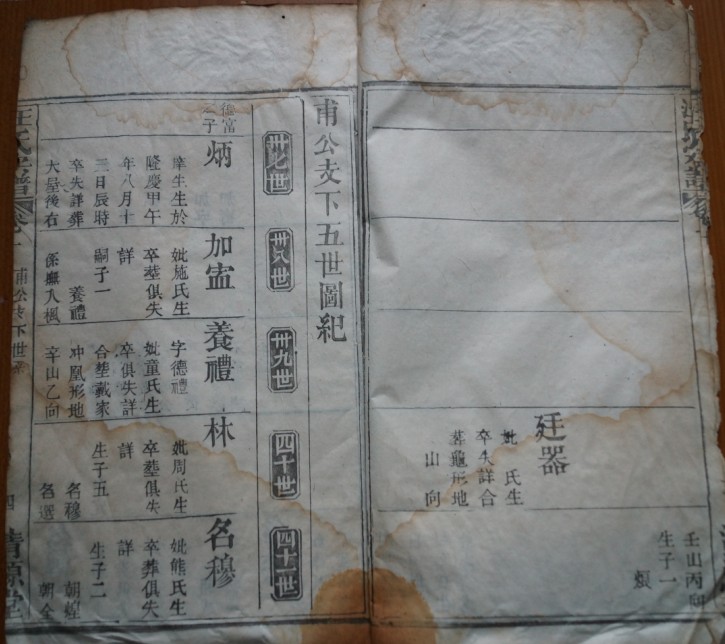 廷器
妣 氏生
卒失詳合
葬龜形地
山向
壬山丙向
生子一
甫公支下五世圖紀
卅七世
卅八世
卅九世
四十世
四十一世
富
子
炳
生生於
隆慶甲午
年八月十
三日辰時
卒失詳葬
大屋後右
加
妣施氏生
卒塟俱失
詳
嗣子一
養禮
係撫九楓
養禮
字德禮
妣童氏生
卒俱失詳
合塟戴家
冲凰形地
辛山乙向
林
妣周氏生
卒塟俱失
詳
生子五
名穆
名選
名穆
妣熊氏生
卒葬俱失
詳
生子二
朝煌
朝全
汪氏宗譜
甫公支下世系
四
清源堂